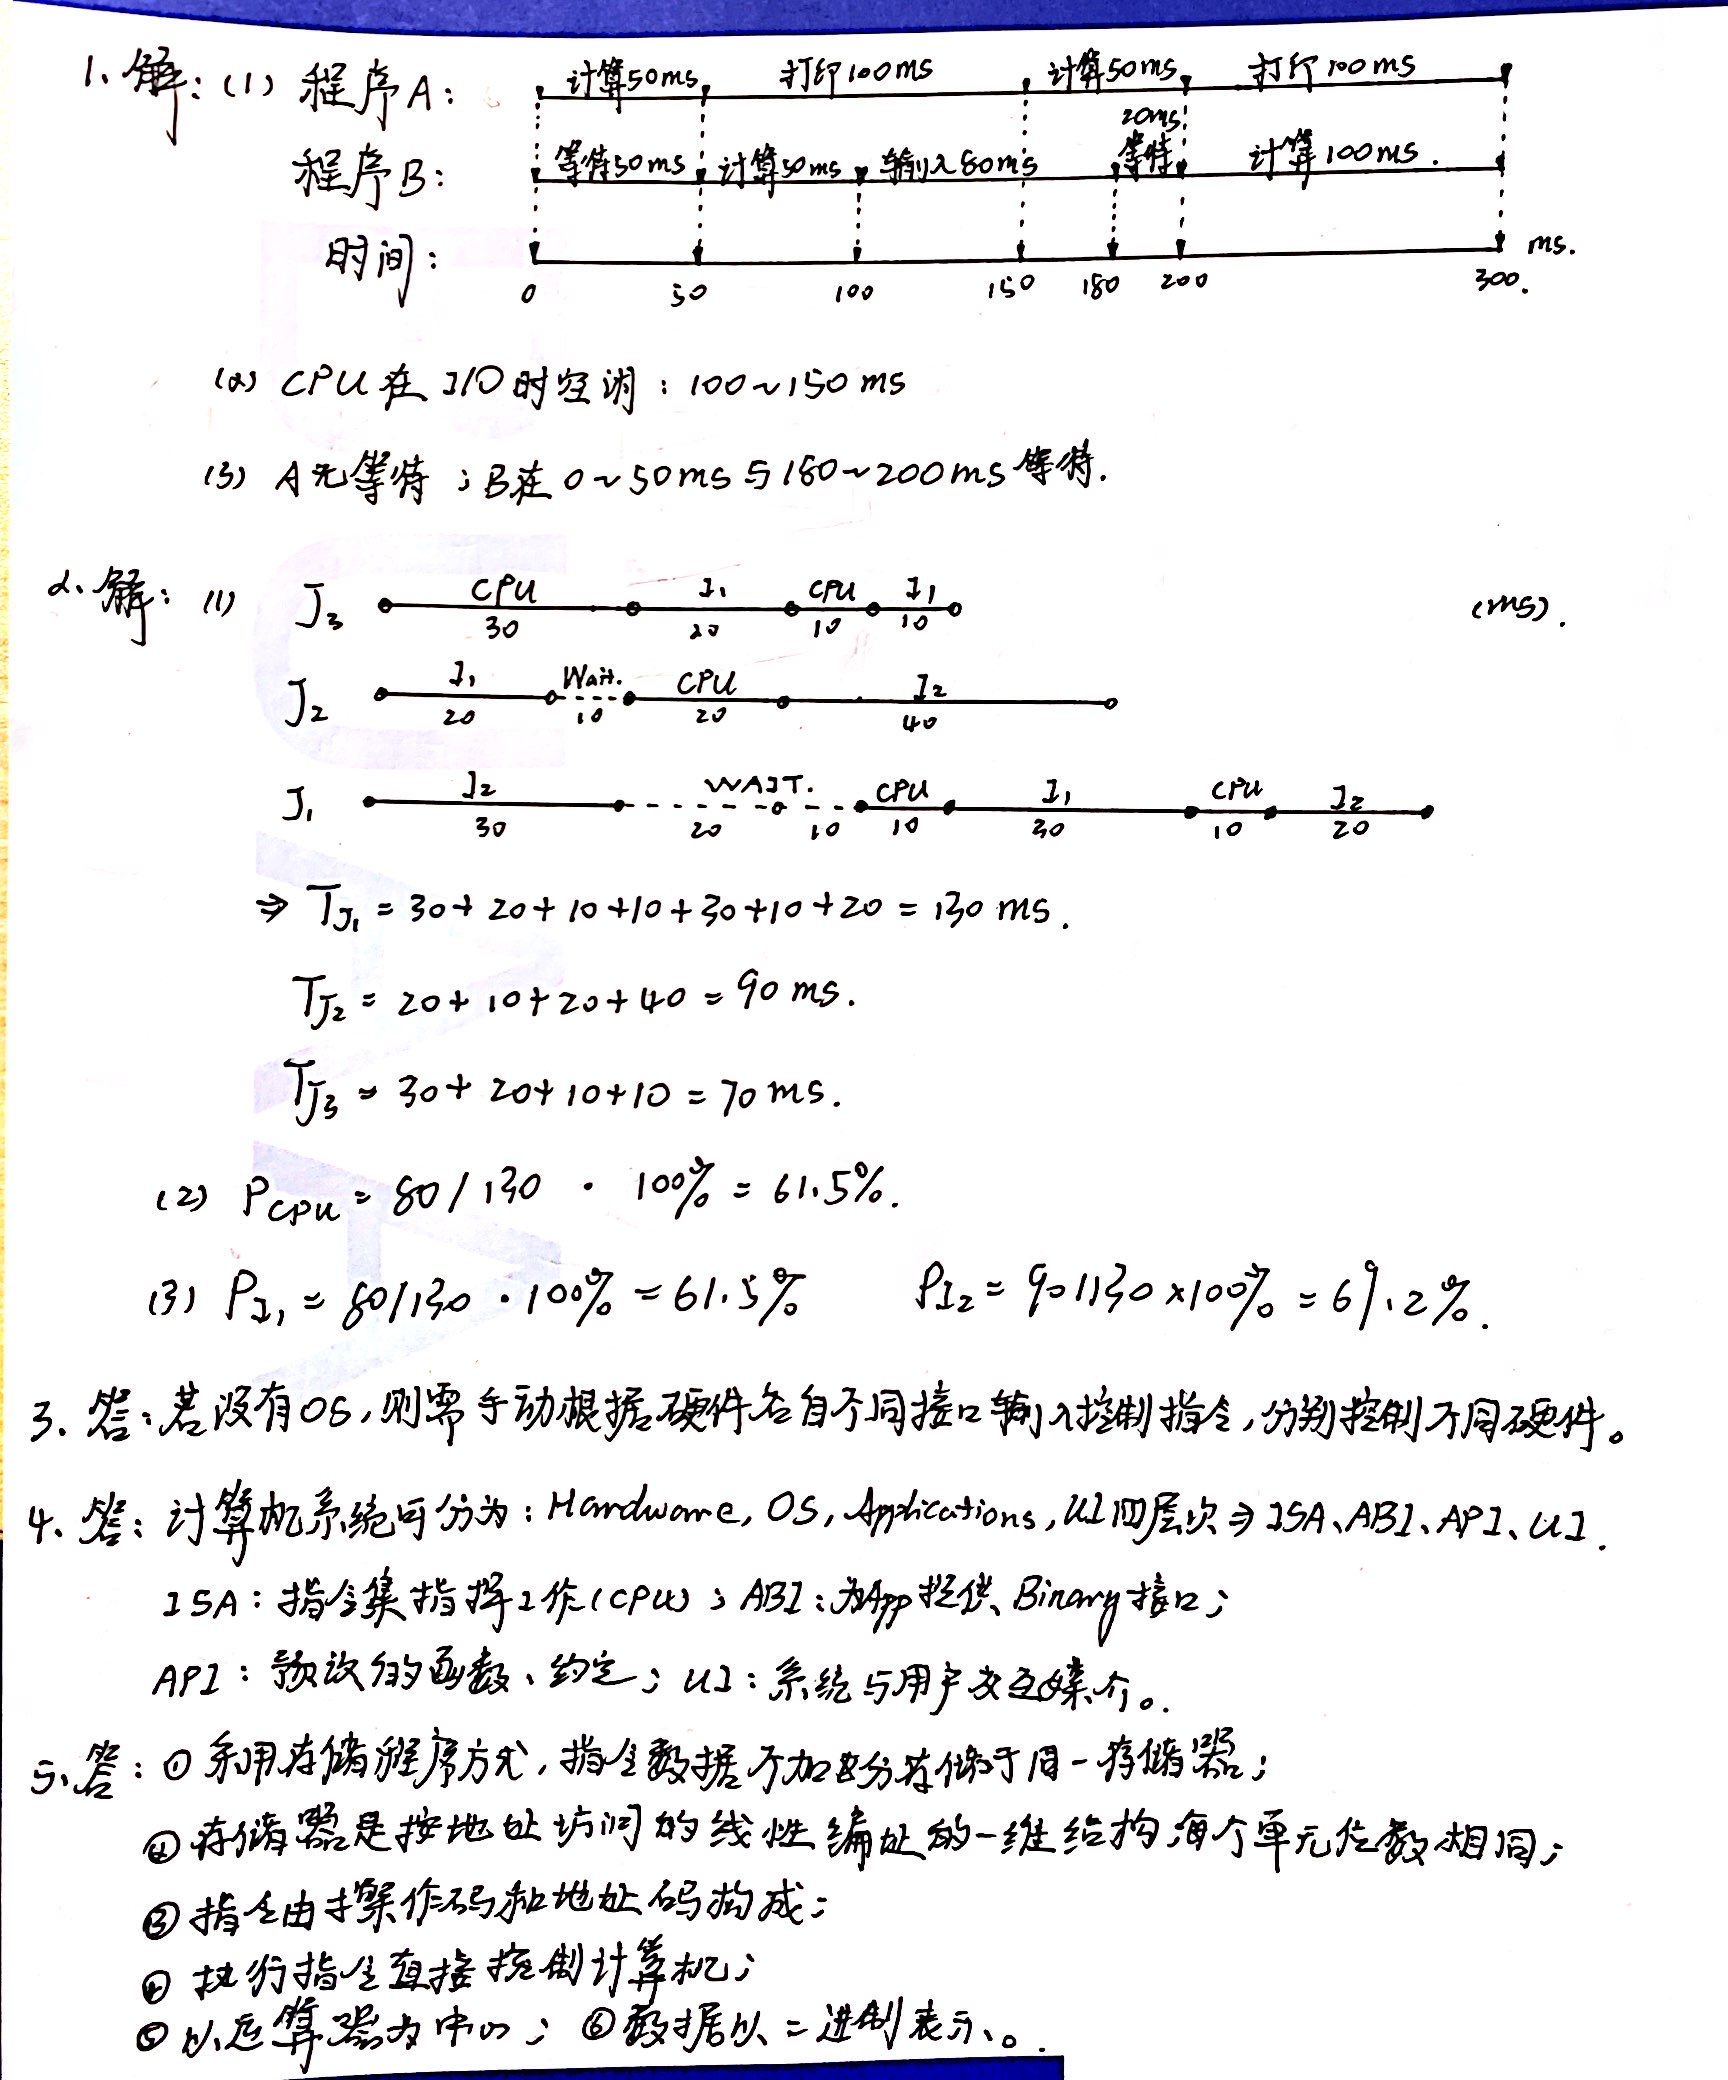 1、解：(1) 程序A： 计算50ms 打印100ms 计算50ms 打印100ms
程序B： 等待50ms 计算50ms 输入80ms 20ms 等待 计算100ms.
时间： ms.
0 50 100 150 180 200 300.
(2) CPU在I/O时空闲：100~150ms
(3) A无等待；B在0~50ms与180~200ms等待.
2、解：(1) J₃ CPU 30 I₁ 20 CPU 10 I₁ 10 (ms).
J₂ I₁ 20 Wait. 10 CPU 20 I₂ 40
J₁ I₂ 30 WAIT. 20 10 CPU 10 I₁ 30 CPU 10 I₂ 20
⇒ T_J₁ = 30+20+10+10+30+10+20 = 130 ms.
T_J₂ = 20+10+20+40 = 90 ms.
T_J₃ = 30+20+10+10 = 70 ms.
(2) P_CPU = 80/130 · 100% = 61.5%.
(3) P_I₁ = 80/130 · 100% = 61.5% P_I₂ = 90/130 ×100% = 69.2%.
3、答：若没有OS，则需手动根据硬件各自不同接口输入控制指令，分别控制不同硬件。
4、答：计算机系统可分为：Hardware, OS, Applications, UI四层次⇒ISA、ABI、API、UI.
ISA：指令集指挥工作(CPU)；ABI：为App提供Binary接口；
API：预设的函数、约定；UI：系统与用户交互媒介。
5、答：①采用存储程序方式，指令数据不加区分存储于同一存储器；
②存储器是按地址访问的线性编址的一维结构，每个单元位数相同；
③指令由操作码和地址码构成；
④执行指令直接控制计算机；
⑤以运算器为中心；⑥数据以二进制表示。